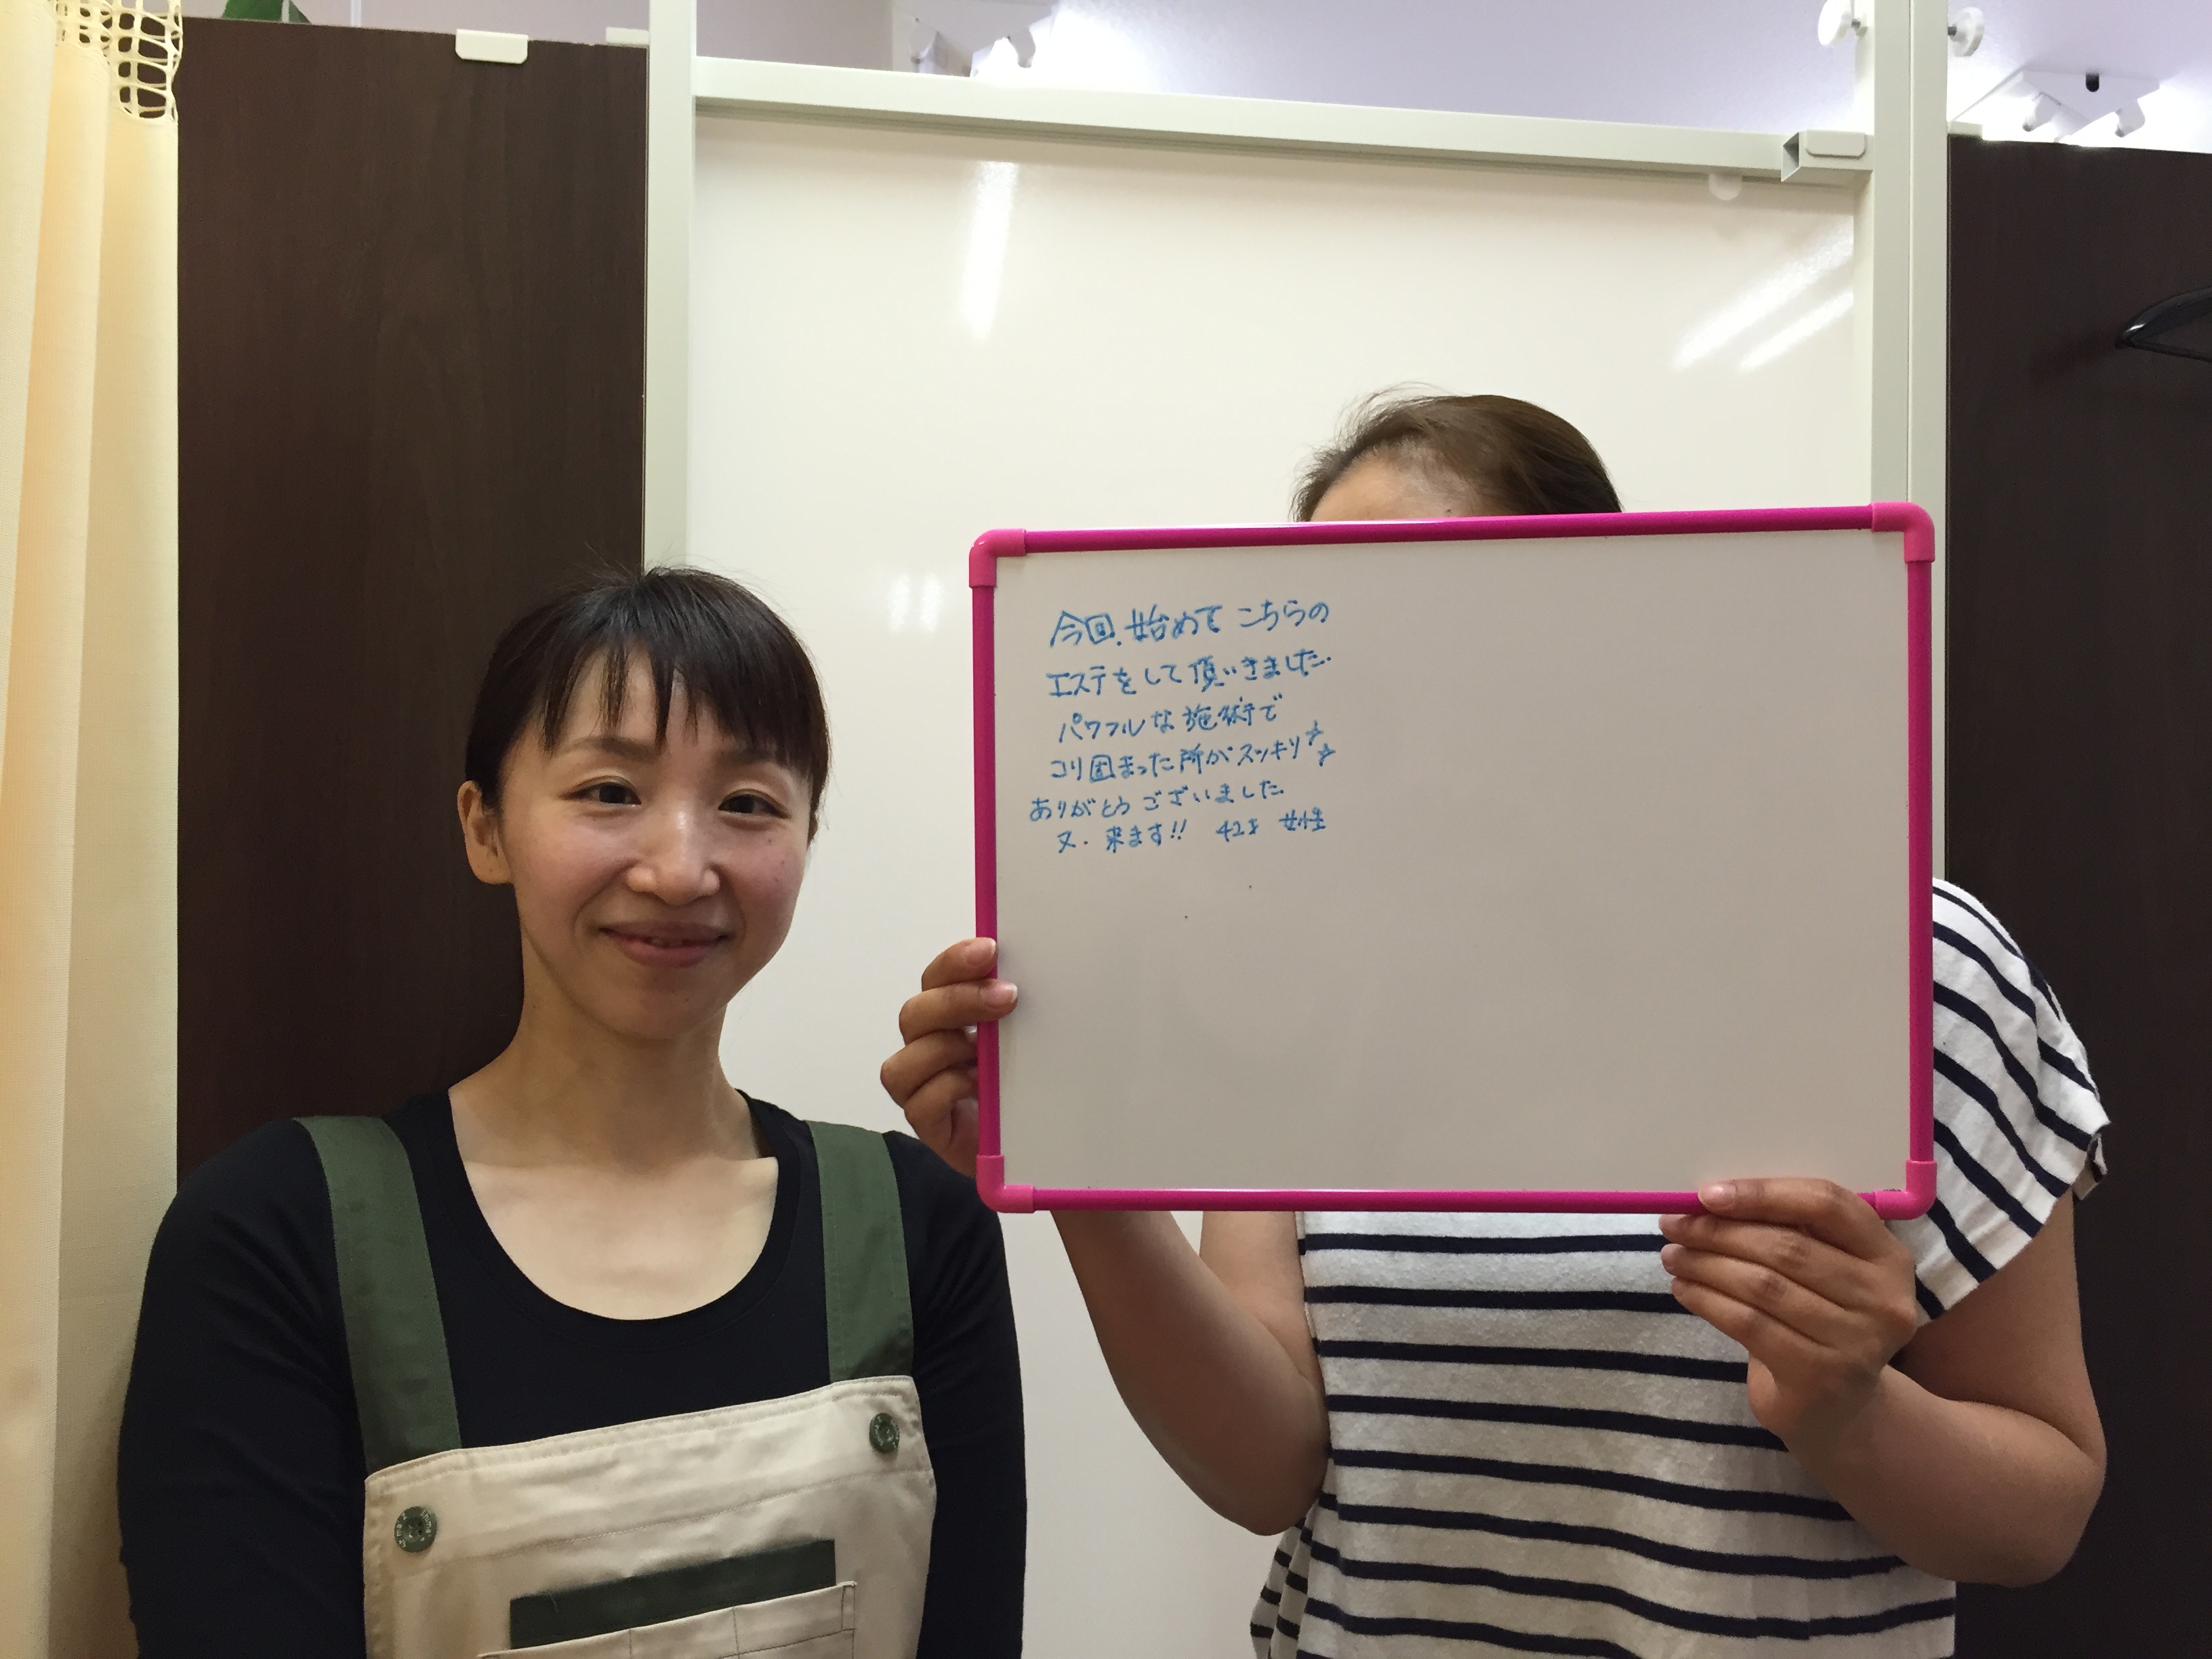 今回、始めて こちらの
エステをして頂いきました。
パワフルな施術で
コリ固まった所がスッキリ☆☆
ありがとうございました。
又、来ます!! 42才 女性